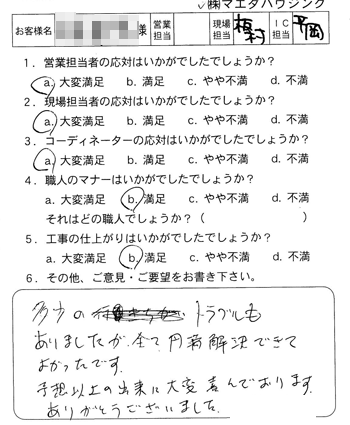 ㈱マエダハウジング
お客様名 様 営業担当 現場担当 植村 IC担当 平岡
1．営業担当者の応対はいかがでしたでしょうか？
a. 大変満足 b. 満足 c. やや不満 d. 不満
2．現場担当者の応対はいかがでしたでしょうか？
a. 大変満足 b. 満足 c. やや不満 d. 不満
3．コーディネーターの応対はいかがでしたでしょうか？
a. 大変満足 b. 満足 c. やや不満 d. 不満
4．職人のマナーはいかがでしたでしょうか？
a. 大変満足 b. 満足 c. やや不満 d. 不満
それはどの職人でしょうか？（ ）
5．工事の仕上がりはいかがでしたでしょうか？
a. 大変満足 b. 満足 c. やや不満 d. 不満
6．その他、ご意見・ご要望をお書き下さい。
多少の トラブルも
ありましたが、全て、円満解決できて
よかったです。
予想以上の出来に大変喜んでおります。
ありがとうございました。